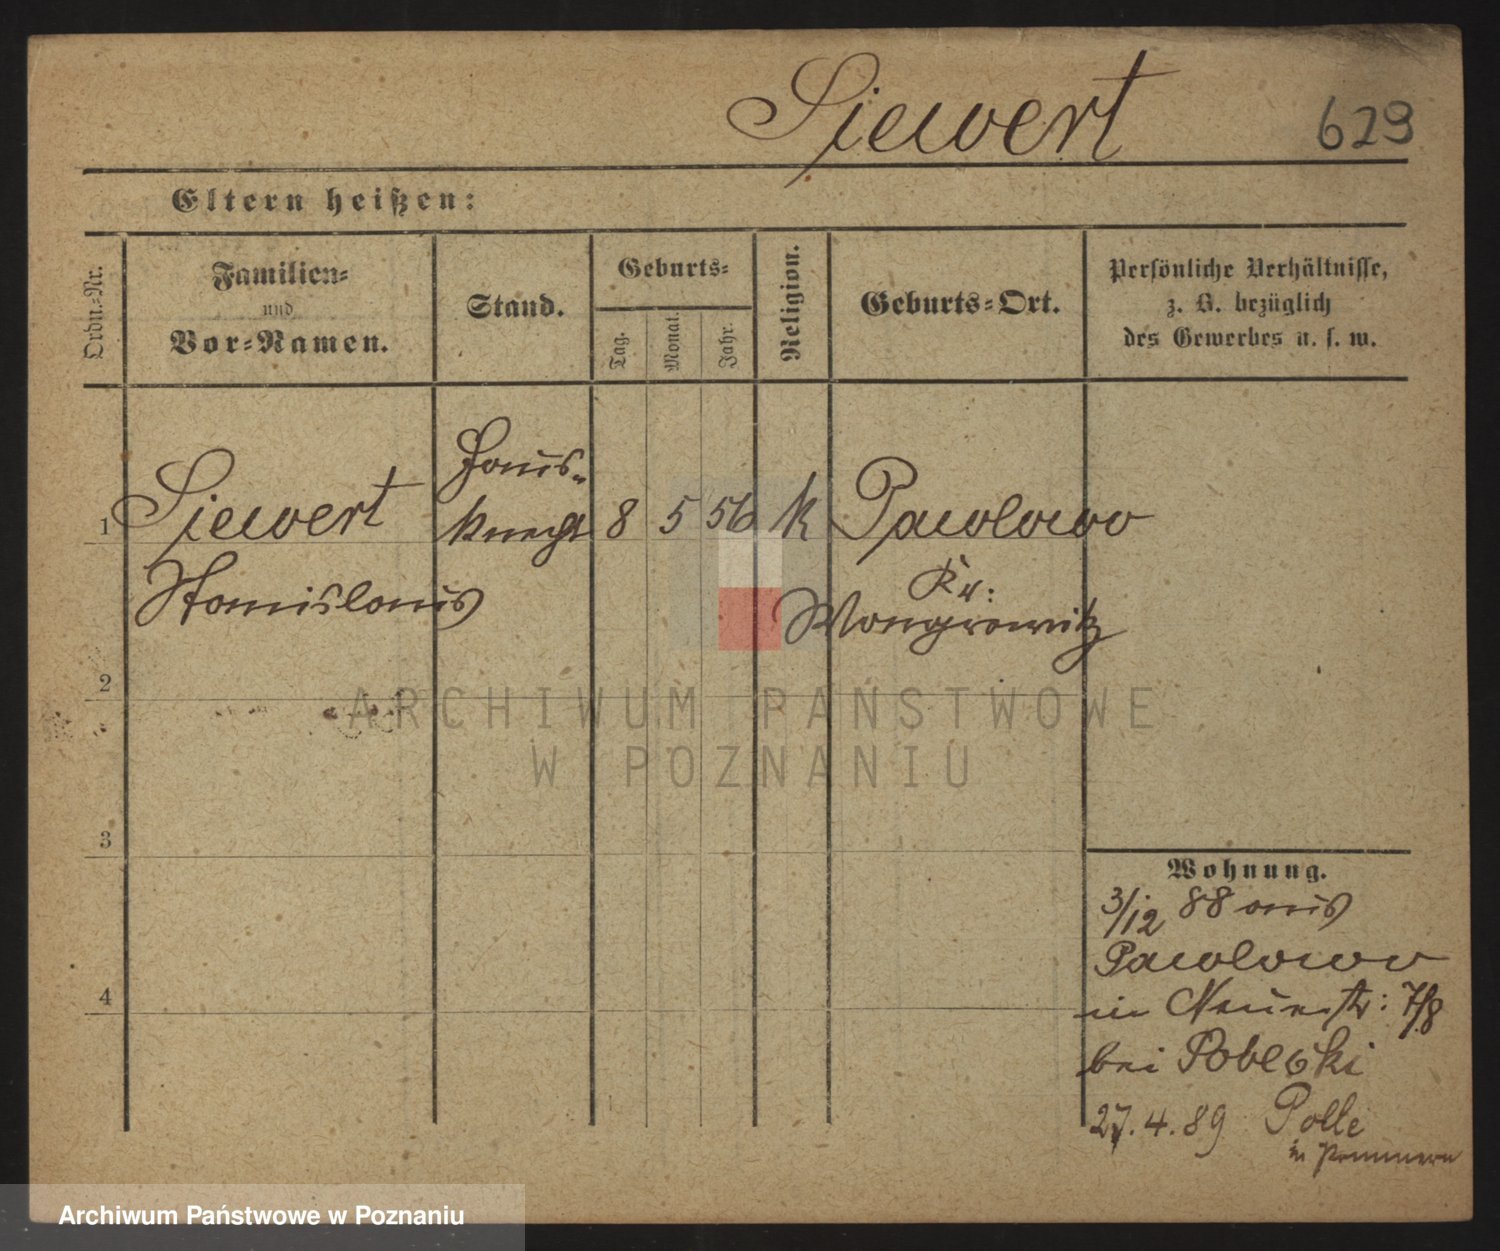 Siewert 629
Eltern heißen:
Ordn.-Nr.
Familien-
und
Vor-Namen.
Stand.
Geburts-
Tag.
Monat.
Jahr.
Religion.
Geburts-Ort.
Persönliche Verhältnisse,
z. B. bezüglich
des Gewerbes u. s. w.
1 Siewert
Stanislaus
Haus-
knecht
8 5 56 k Pawlowo
Kr:
Wongrowitz
2
3
4
Wohnung.
3/12 88 aus
Pawlowo
in Neuestr: 7/8
bei
27.4.89 Polle
in Pommern
ARCHIWUM PAŃSTWOWE
W POZNANIU
Archiwum Państwowe w Poznaniu